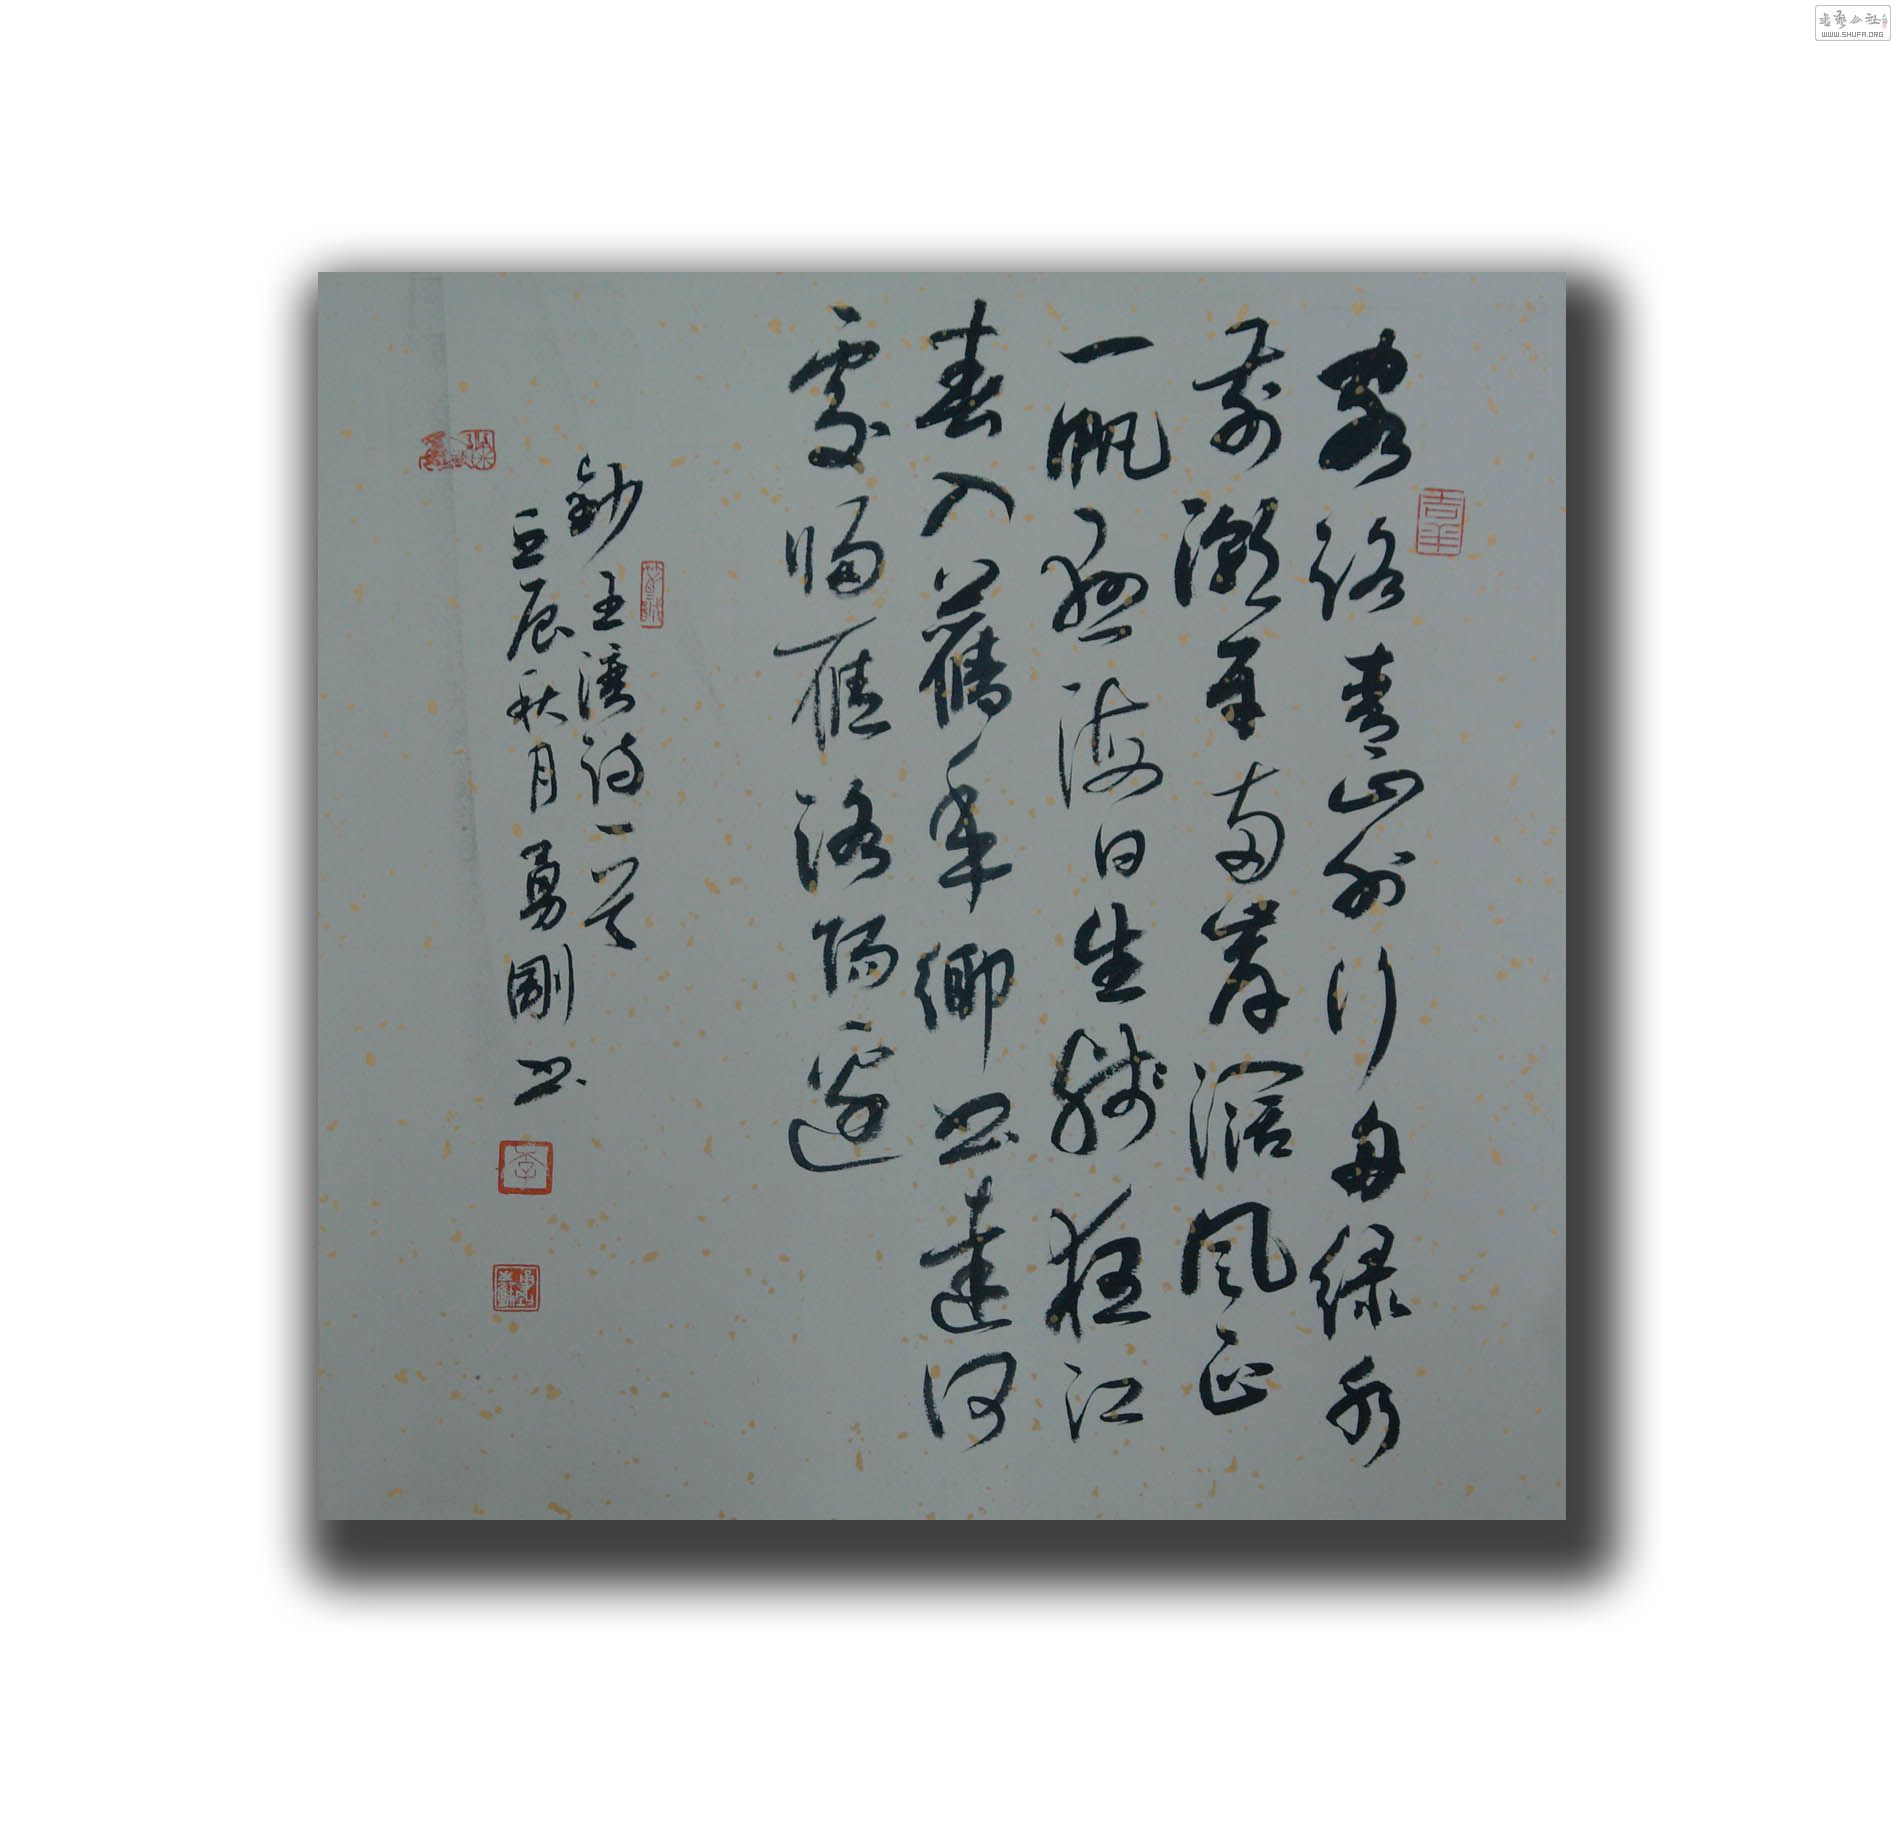 書藝公社
WWW.SHUFA.ORG
客路青山外行舟緑水
前潮平兩岸濶風正
一帆懸海日生殘夜江
春入舊年鄉書達何
處歸雁洛陽邊
鈔王灣詩一首
壬辰秋月勇剛書
吉羊
李